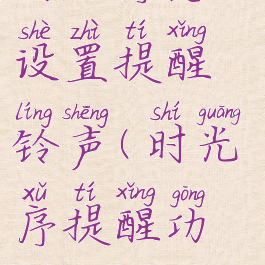 shè zhì tí xǐng
设置提醒
líng shēng shí guāng
铃声(时光
xǔ tí xǐng gōng
序提醒功